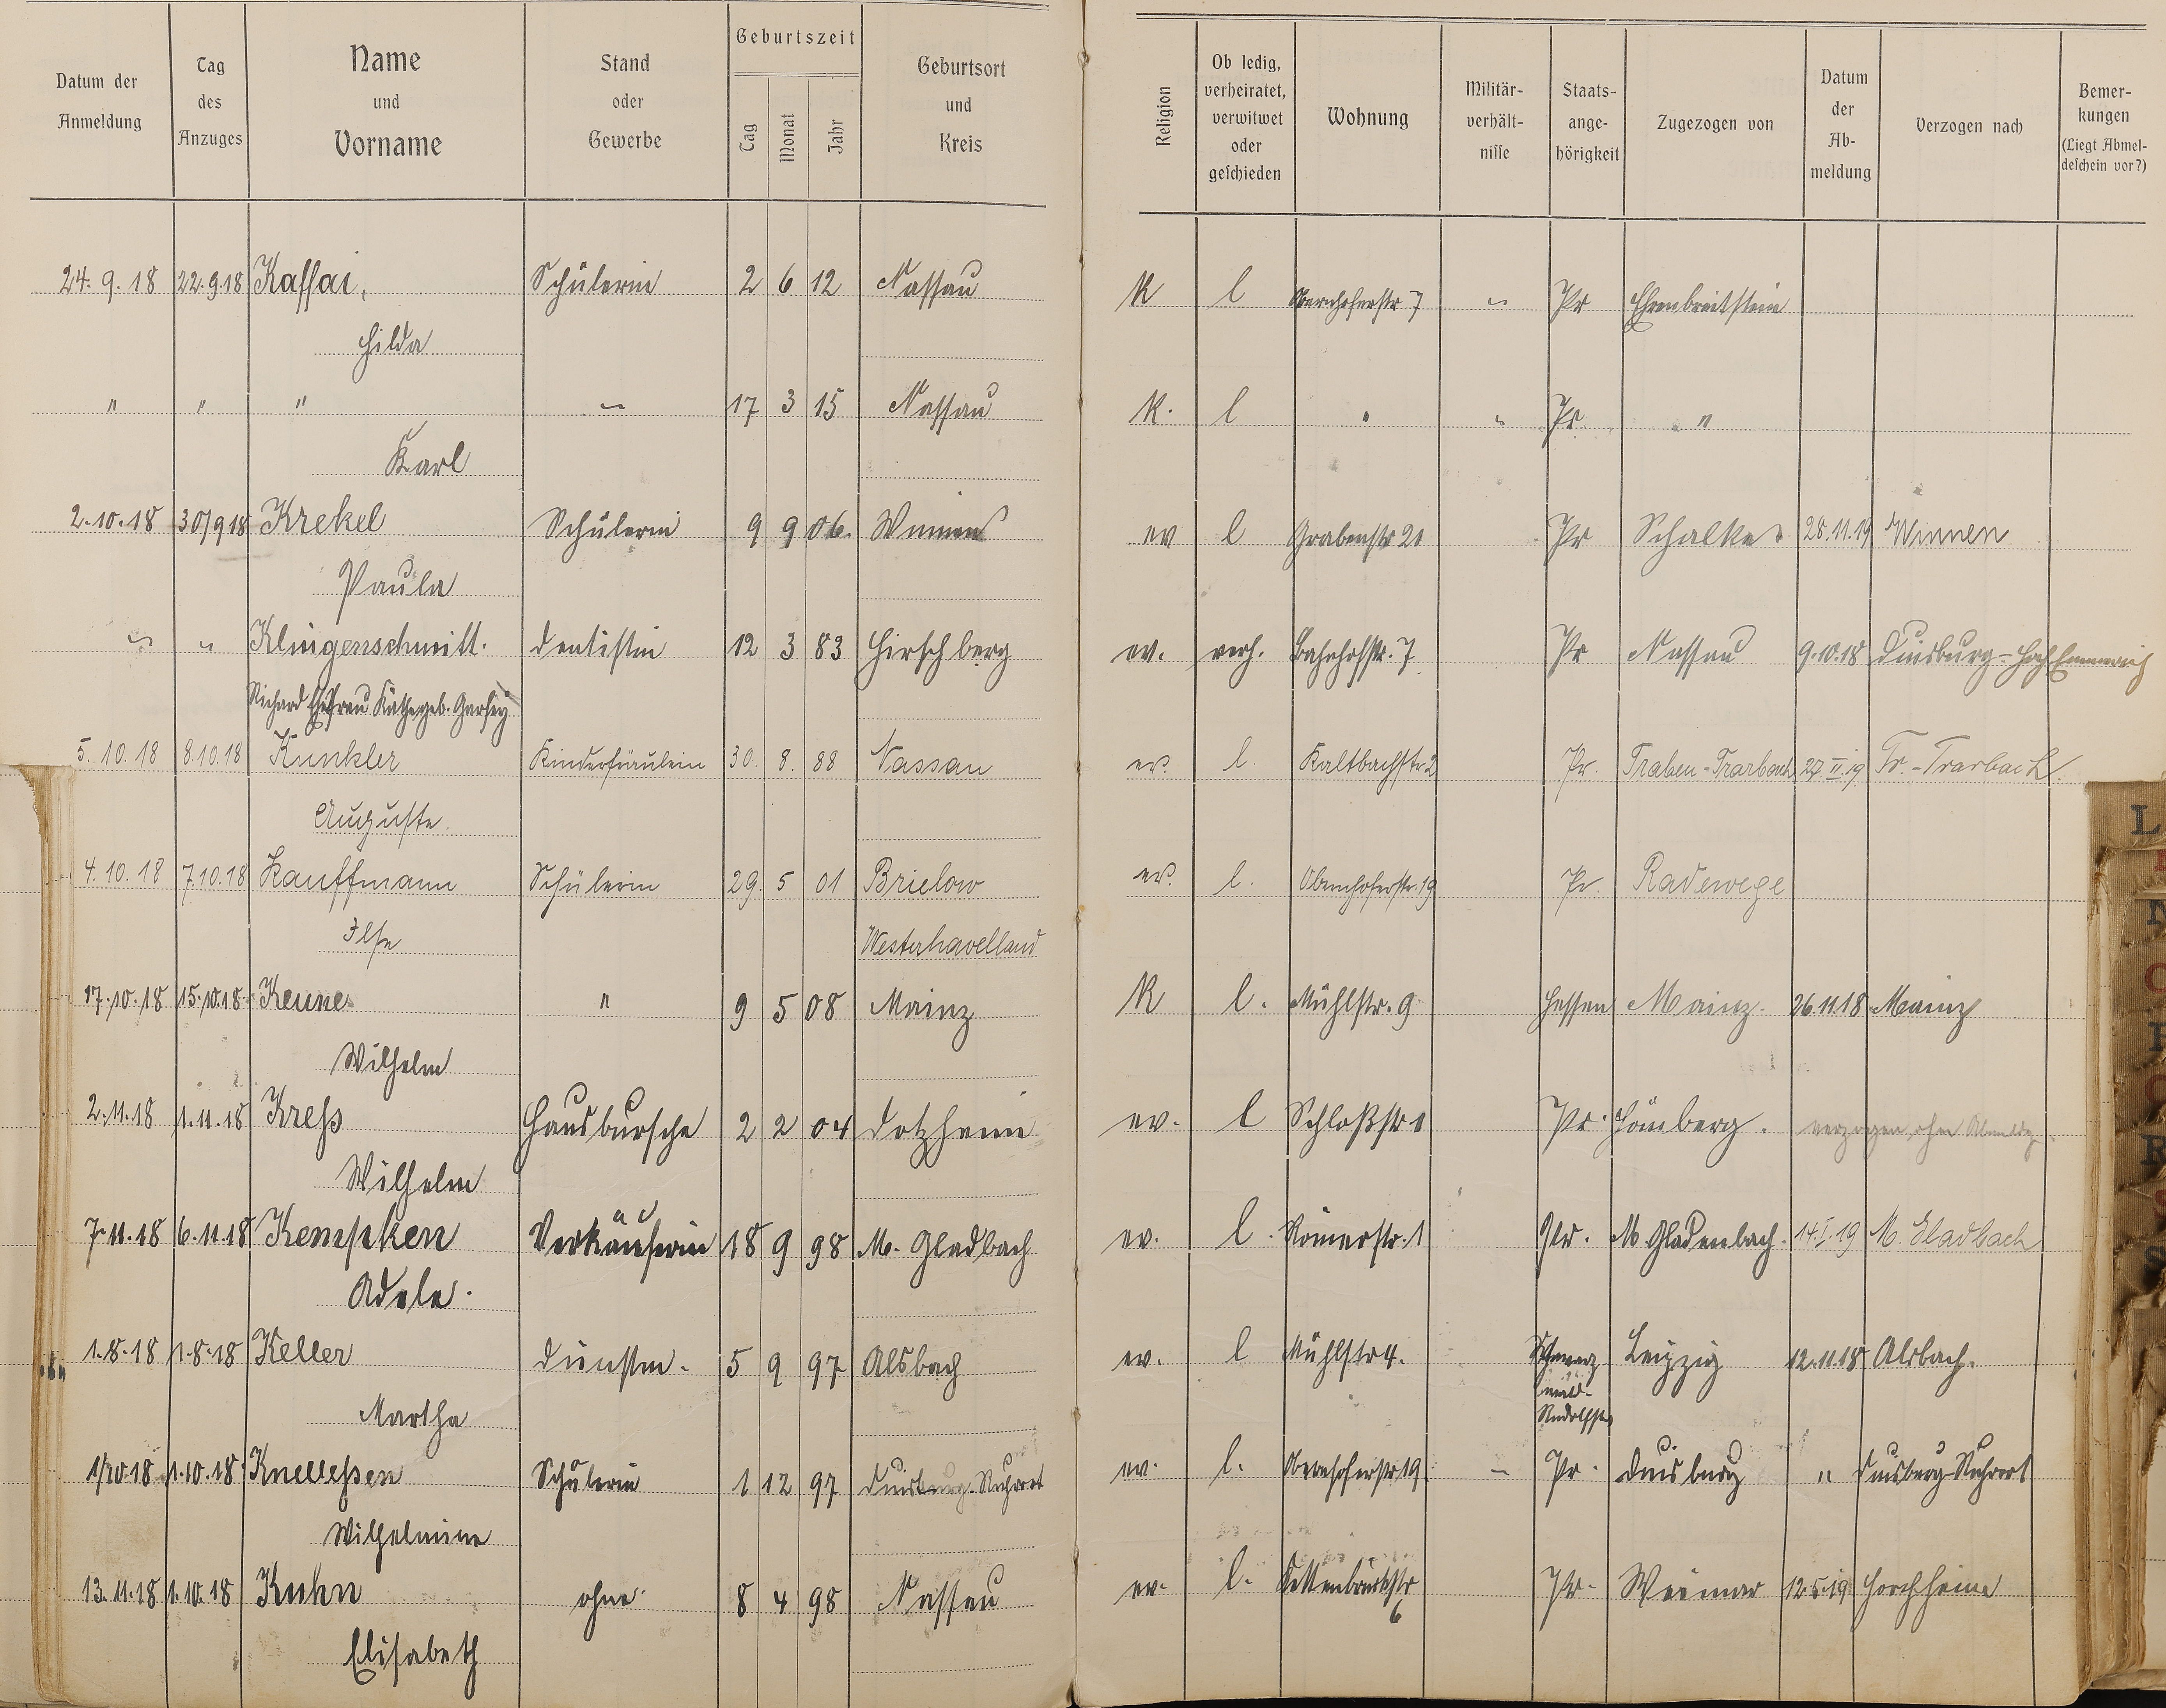 Datum der Anmeldung | Tag des Anzuges | Name und Vorname | Stand oder Gewerbe | Geburtszeit Tag Monat Jahr | Geburtsort und Kreis | Religion | Ob ledig, verheiratet, verwitwet oder geschieden | Wohnung | Militär-verhält-nisse | Staats-ange-hörigkeit | Zugezogen von | Datum der Ab-meldung | Verzogen nach | Bemer-kungen (Liegt Abmel-deschein vor?)
24.9.18 22.9.18 Kassai, Schülerin 2 6 12 Nassau K l Obernhoferstr 7 " Pr Ehrenbreitstein
Hilda
" " " " 17 3 15 Nassau K. l " " Pr. "
Karl
2.10.18 30/9 18 Krekel Schülerin 9 9 06. Winnen ev l Grabenstr 21 Pr Schalke 28.11.19 Winnen
Paula
" " Klingenschmitt. Dentistin 12 3 83 Hirschberg ev. verh. Bahnhofstr. 7 Pr Nassau 9.10.18 Duisburg-Hochemmerich
Richard Ehefrau Käthe geb.
5.10.18 8.10.18 Kunkler Kinderfräulein 30. 8. 88 Nassau ev. l. Kaltbachstr 2 Pr. Traben-Trarbach 27 II. 19 Tr.-Trarbach.
Auguste.
4.10.18 7.10.18 Kauffmann Schülerin 29. 5 01 Brielow ev. l. Obernhoferstr. 19 Pr. Radewege
Ilse Westerhavelland
17.10.18 15.10.18 Keune " 9 5 08 Mainz K l. Mühlstr. 9 Hessen Mainz. 26.11.18 Mainz
Wilhelm
2.11.18 1.11.18 Kreß Hausbursche 2 2 04 Dotzheim ev. l Schloßstr 1 Pr. Hömberg. verzogen ohne Abmeldg.
Wilhelm
7.11.18 6.11.18 Kempken Verkäuferin 18 9 98 M. Gladbach ev. l. Römerstr. 1 Pr. M. Gladenbach. 14.I.19 M. Gladbach
Adele.
1.8.18 1.8.18 Keller Dienstm. 5 9 97 Alsbach ev. l Mühlstr 4. Schwarz Leipzig 12.11.18 Alsbach.
Martha Rudolfst
1/10 18 1.10.18 Knelleßen Schülerin 1 12 97 Duisburg-Ruhrort ev. l. Obernhoferstr 19. – Pr. Duisburg " Duisburg-Ruhrort
Wilhelmine
13.11.18 1.10.18 Kuhn ohne 8 4 98 Nassau ev. l. Kettenbrückstr 6 Pr. Weimar 12.5.19 Horchheim
Elisabeth
L
N
O
P
R
S